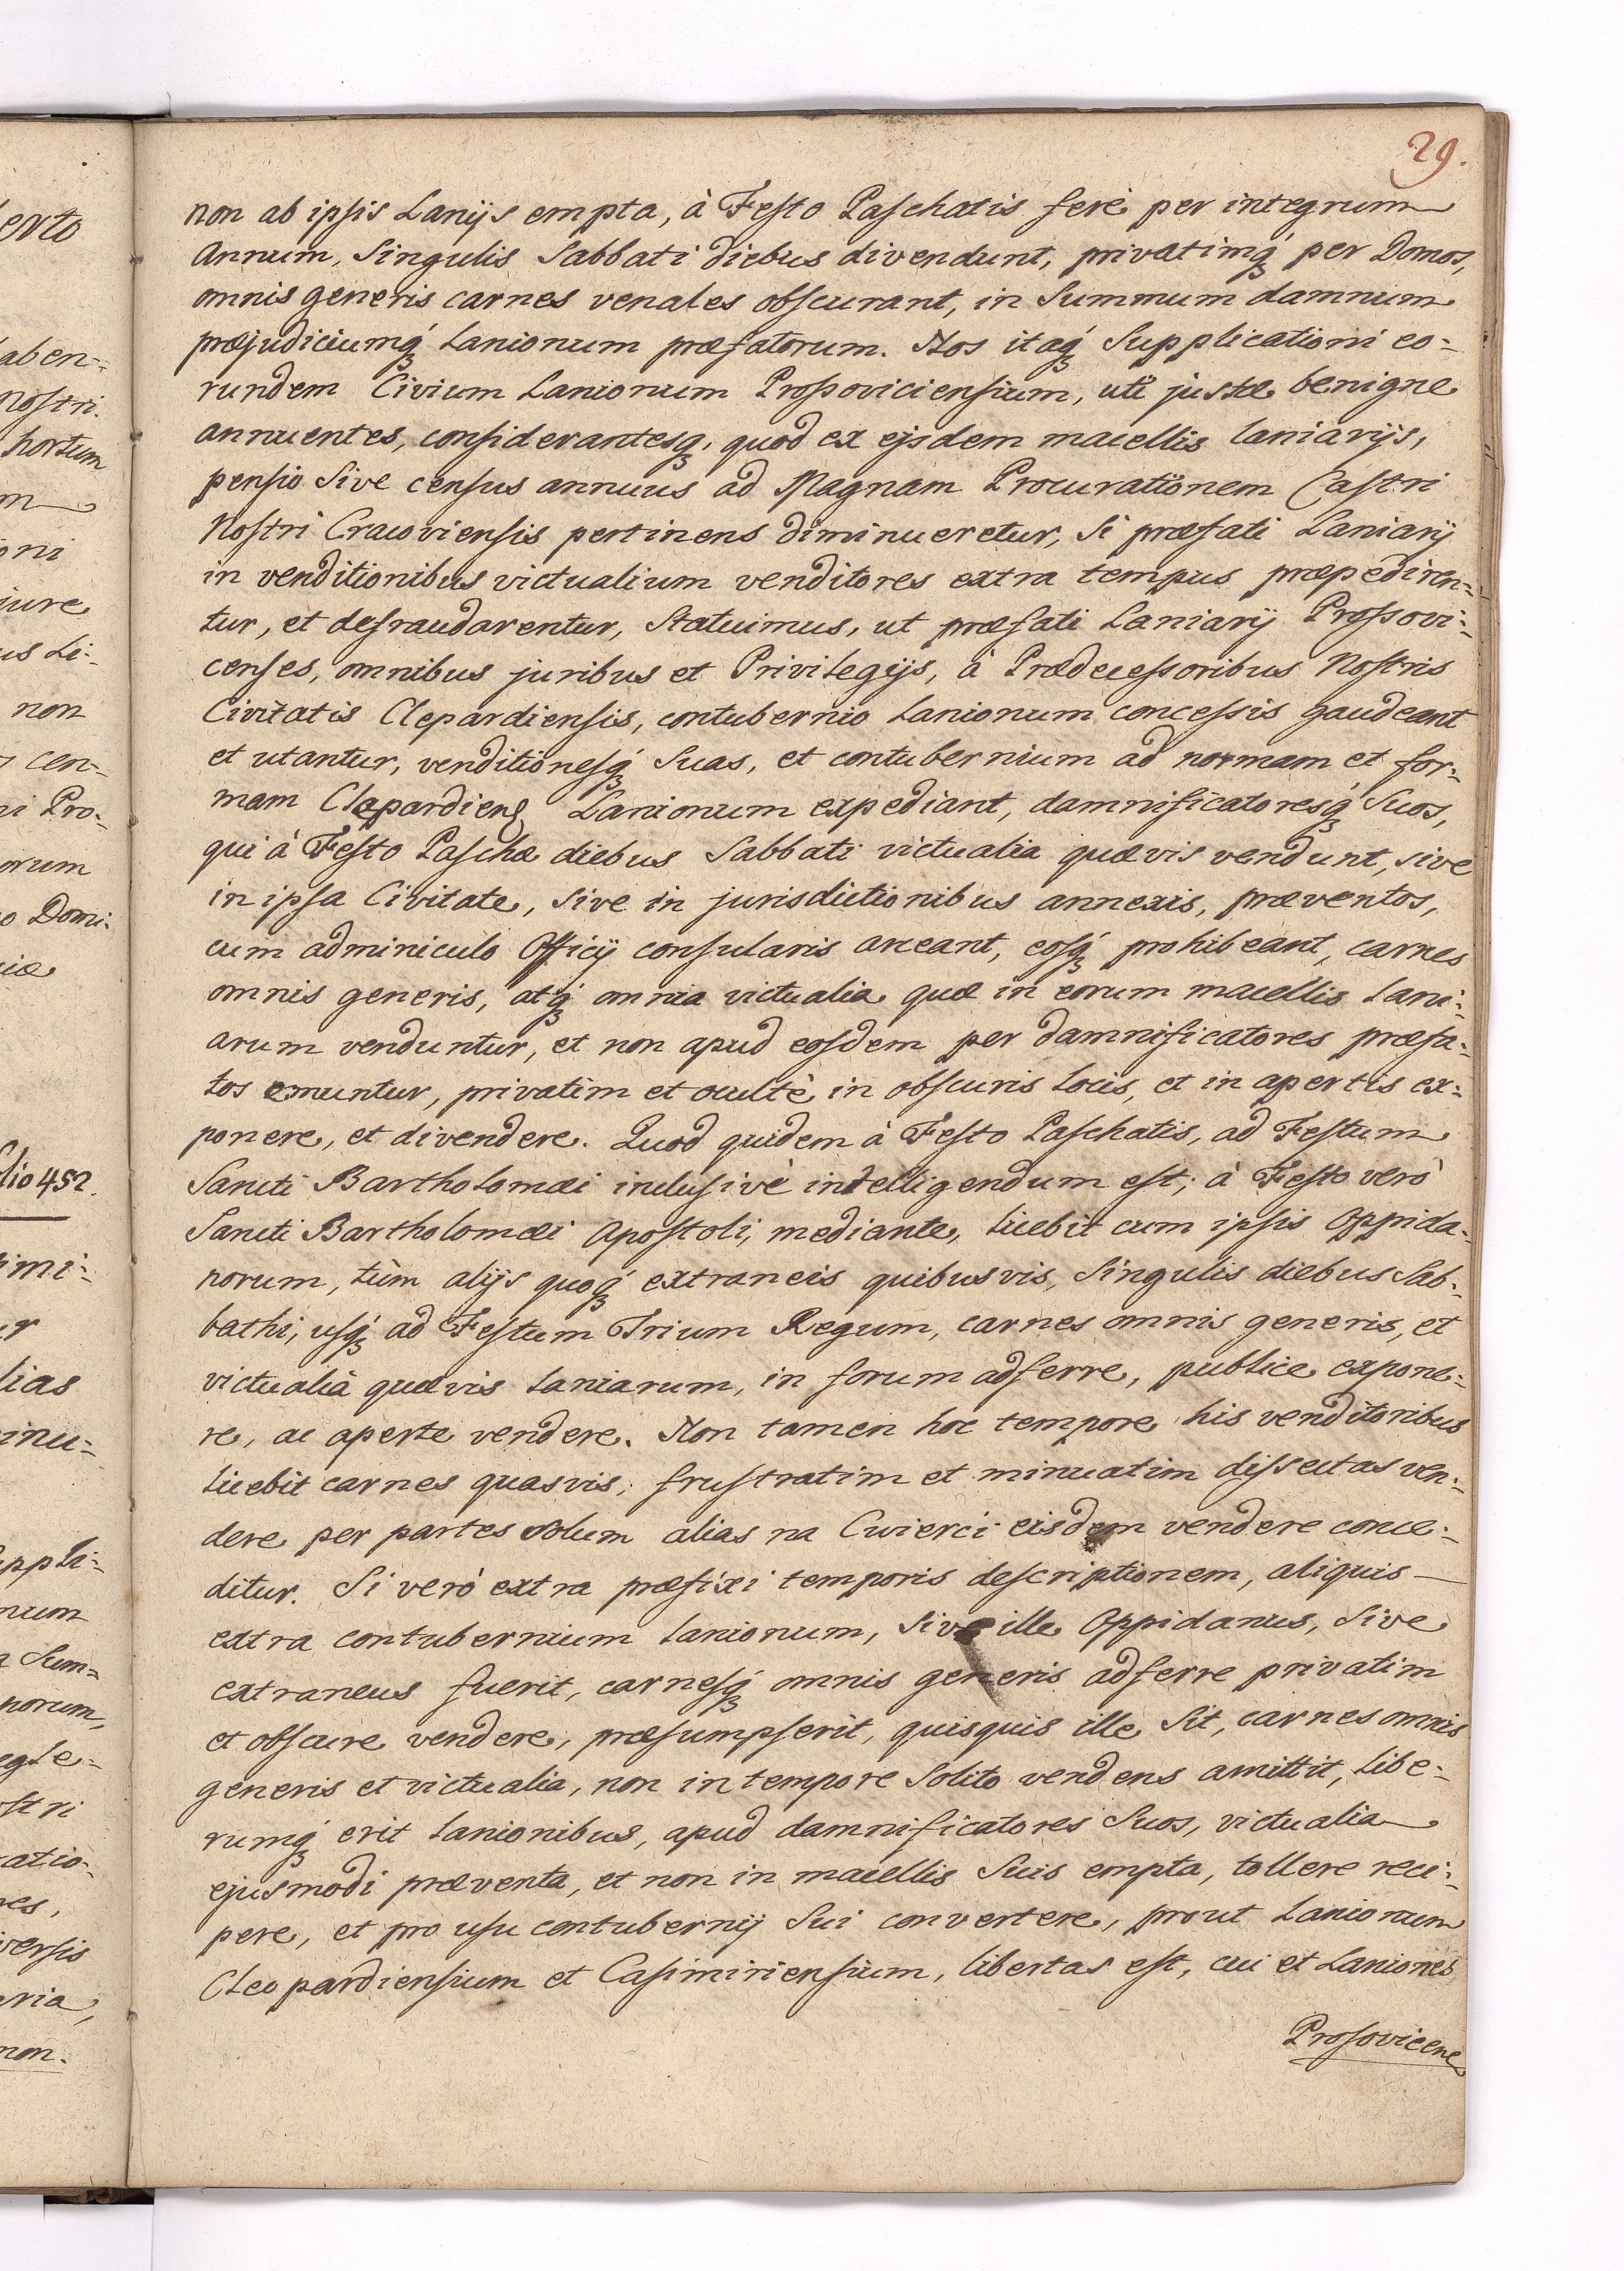 29.
non ab ipsis Lanijs empta, à Festo Paschatis ferè per integrum
Annum, Singulis Sabbati diebus divendunt, privatimq́ per Domos,
omnis generis carnes venales obscurant, in Summum damnum
præjudiciumq́ Lanionum præfatorum. Nos itaq́ Supplicationi eo-
rundem Civium Lanionum Prossoviciensium, uti justæ benigne
annuentes, considerantesq, quod ex ejsdem macellis laniarijs,
pensio Sive census annuus ad Magnam Procurationem Castri
Nostri Cracoviensis pertinens diminueretur, Si præfati Laniarij
in venditionibus victualium venditores extra tempus præpediren-
tur, et defraudarentur, Statuimus, ut præfati Laniarij Prossovi-
censes, omnibus juribus et Privilegijs, à Prædecessoribus Nostris
Civitatis Clepardiensis, contubernio Lanionum concessis gaudeant
et utantur, venditionesq́ Suas, et contubernium ad normam et for-
mam Clepardiens Lanionum expediant, damnificatoresq́ Suos,
qui à Festo Paschæ diebus Sabbati victualia quævis vendunt, sive
in ipsa Civitate, sive in jurisdictionibus annexis, præventos,
cum adminiculo Officij consularis arceant, eosq́ prohibeant, carnes
omnis generis, atq́ omnia victualia quæ in eorum macellis Lani-
arum venduntur, et non apud eosdem per damnificatores præfa-
tos emuntur, privatim et occultè in obscuris locis, et in apertis ex-
ponere, et divendere. Quod quidem à Festo Paschatis, ad Festum
Sancti Bartholomæi inclusivè intelligendum est; à Festo verò
Sancti Bartholomæi Apostoli, mediante, licebit cum ipsis Oppida-
norum, tùm alijs quoq́ extraneis quibusvis, Singulis diebus Sab-
bathi, usq́ ad Festum Trium Regum, carnes omnis generis, et
victualia quævis laniarum, in forum adferre, publice expone-
re, ac aperte vendere. Non tamen hoc tempore his venditoribus
licebit carnes quasvis, frustratim et minuatim dissectas ven-
dere per partes solum alias na Cwierci eisdem vendere conce-
ditur. Si verò extra præfixi temporis descriptionem, aliquis
extra contubernium Lanionum, sive ille Oppidanus, Sive
extraneus fuerit, carnesq́ omnis generis adferre privatim
et obscure vendere, præsumpserit, quisquis ille Sit, carnes omnis
generis et victualia, non in tempore Solito vendens amittit, libe-
rumq́ erit Lanionibus, apud damnificatores Suos, victualia
ejusmodi præventa, et non in macellis Suis empta, tollere reci-
pere, et pro usu contubernij Sui convertere, prout Lanionum
Cleopardiensium et Casimiriensium, libertas est, cui et Laniones
Prosovicene
erto
aben-
Nostri.
hortum
m
oni
jure
us Li-
non
cen-
ni Pro-
orum
o Domi-
lio 452.
imi-
ur
lias
inu-
uppli-
num
a Sum-
norum,
egle-
ostri
ratio-
nes,
versis
ria,
non.